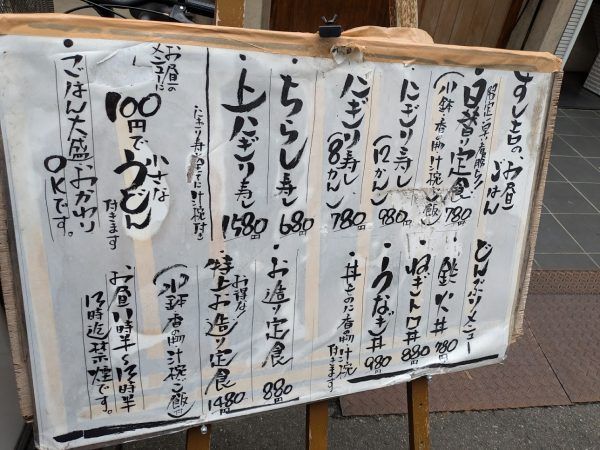 すし吉の、お昼ごはん
日替り定食 780
(小鉢 香の物 汁椀 ご飯)
にぎり寿し (12かん) 980
にぎり寿し (8かん) 780
ちらし寿し 680
上にぎり寿し 1580円
にぎり寿し全てに汁椀付き
お昼のメニューに
100円で小さなうどん付きます
ごはん大盛、おかわり
OKです。
どんぶりメニュー
鉄火丼 780
ねぎトロ丼 880
うなぎ丼 980
丼ものに香の物 汁椀付きます
お造り定食 880円
お得な
特上お造り定食 1480円
(小鉢 香の物 汁椀 ご飯)
お昼11時半〜13時半
13時迄禁煙です。